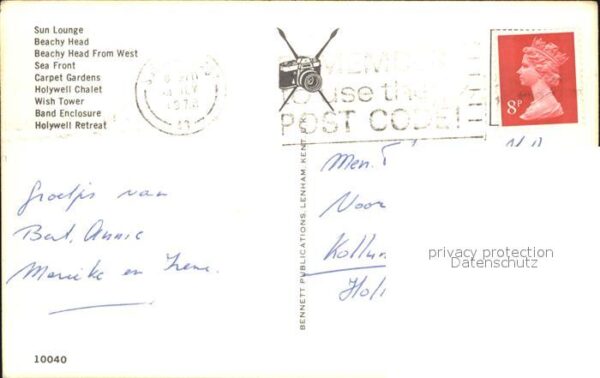 Sun Lounge
Beachy Head
Beachy Head From West
Sea Front
Carpet Gardens
Holywell Chalet
Wish Tower
Band Enclosure
Holywell Retreat
1978
use the
POST CODE!
8P
Groetjes van
Bert, Annie
Marieke en Irene.
BENNETT PUBLICATIONS, LENHAM, KENT
Men.
Noor
Kollum
Hol
privacy protection
Datenschutz
10040